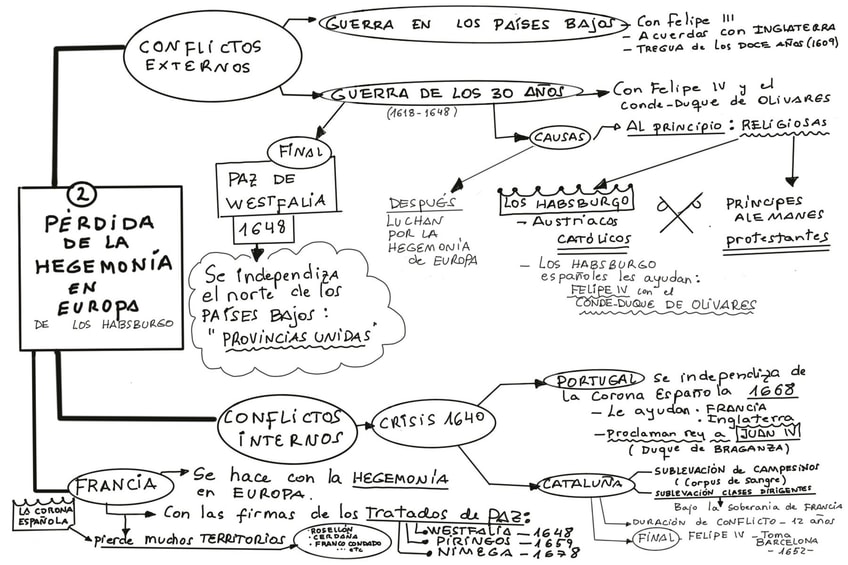 CONFLICTOS
EXTERNOS
GUERRA EN LOS PAÍSES BAJOS
- Con Felipe III
- Acuerdos con INGLATERRA
- TREGUA de los DOCE AÑOS (1609)
GUERRA DE LOS 30 AÑOS
(1618-1648)
Con Felipe IV y el
Conde-Duque de OLIVARES
CAUSAS
AL principio: RELIGIOSAS
FINAL
PAZ DE
WESTFALIA
1648
Se independiza
el norte de los
PAÍSES BAJOS:
"PROVINCIAS UNIDAS"
DESPUÉS
LUCHAN
POR LA
HEGEMONIA
de EUROPA
LOS HABSBURGO
- Austriacos
CATÓLICOS
- LOS HABSBURGO
españoles les ayudan:
FELIPE IV con el
CONDE-DUQUE DE OLIVARES
PRÍNCIPES
ALEMANES
protestantes
2
PÉRDIDA
DE LA
HEGEMONÍA
EN
EUROPA
DE LOS HABSBURGO
CONFLICTOS
INTERNOS
CRISIS 1640
PORTUGAL se independiza de
la Corona Española 1668
- Le ayudan · FRANCIA
· Inglaterra
- Proclaman rey a JUAN IV
(Duque de BRAGANZA)
CATALUÑA
- SUBLEVACIÓN DE CAMPESINOS
(Corpus de sangre)
- SUBLEVACIÓN CLASES DIRIGENTES
Bajo la soberania de FRANCIA
DURACIÓN de CONFLICTO - 12 años
FINAL FELIPE IV - Toma
BARCELONA
- 1652 -
FRANCIA
Se hace con la HEGEMONÍA
en EUROPA.
Con las firmas de los Tratados de PAZ:
WESTFALIA - 1648
PIRINEOS - 1659
NIMEGA - 1678
LA CORONA
ESPAÑOLA
pierde muchos TERRITORIOS
· ROSELLÓN
· CERDAÑA
· FRANCO CONDADO
... etc